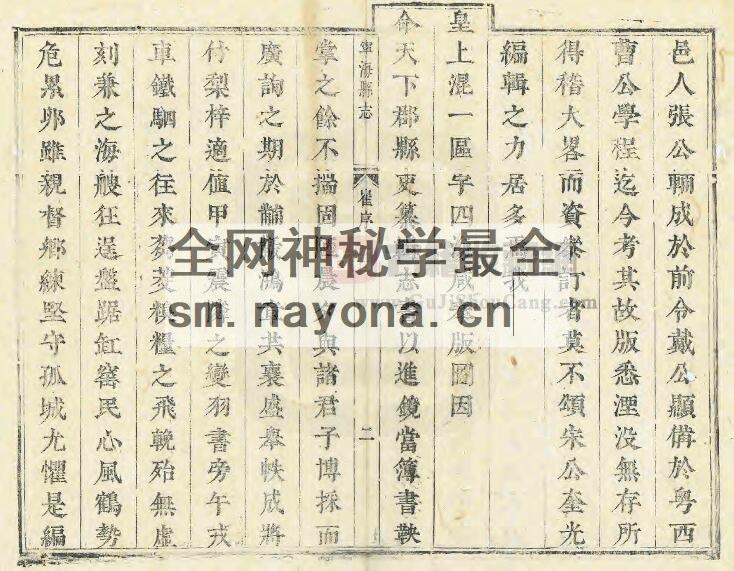 邑人張公輔成於前令戴公顯僃於粤西
曹公學程迄今考其故版悉湮没無存所
得稽大畧而資叅訂者莫不頌宋公奎光
編輯之力居多
皇上混一區宇四 咸 版圖因
命天下郡縣更纂 志 以進鏡當簿書鞅
寧海縣志
崔序
二
掌之餘不揣固 與諸君子博採而
廣詢之期於黼 共襄盛舉帙成將
付梨梓適值甲寅震 之變羽書旁午戎
車鐵駟之往來芻茭糗糧之飛輓殆無虛
刻兼之海艘狂逞盤踞缸窰民心風鶴勢
危累卵雖親督鄉練堅守孤城尤懼是編
全网神秘学最全
sm.nayona.cn
www.GuJiShouCang.com